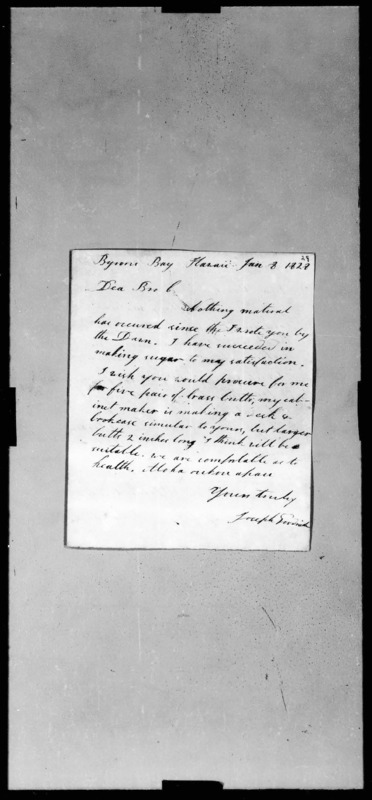 28
Byrons Bay Hawaii Jan 8 1828
Dea Bro C.
Nothing matural
has occured since the I wrote you by
the Dawn. I have succeeded in
making sugar to my satisfaction.
I wish you would procure for me
five pair of brass butts, my cab-
inet maker is making a desk &
bookcase simular to yours, but larger
butts 2 inches long I think will be
suitable. we are comfortable as to
health. Aloha oukou apau
Yours truly
Joseph Goodrich